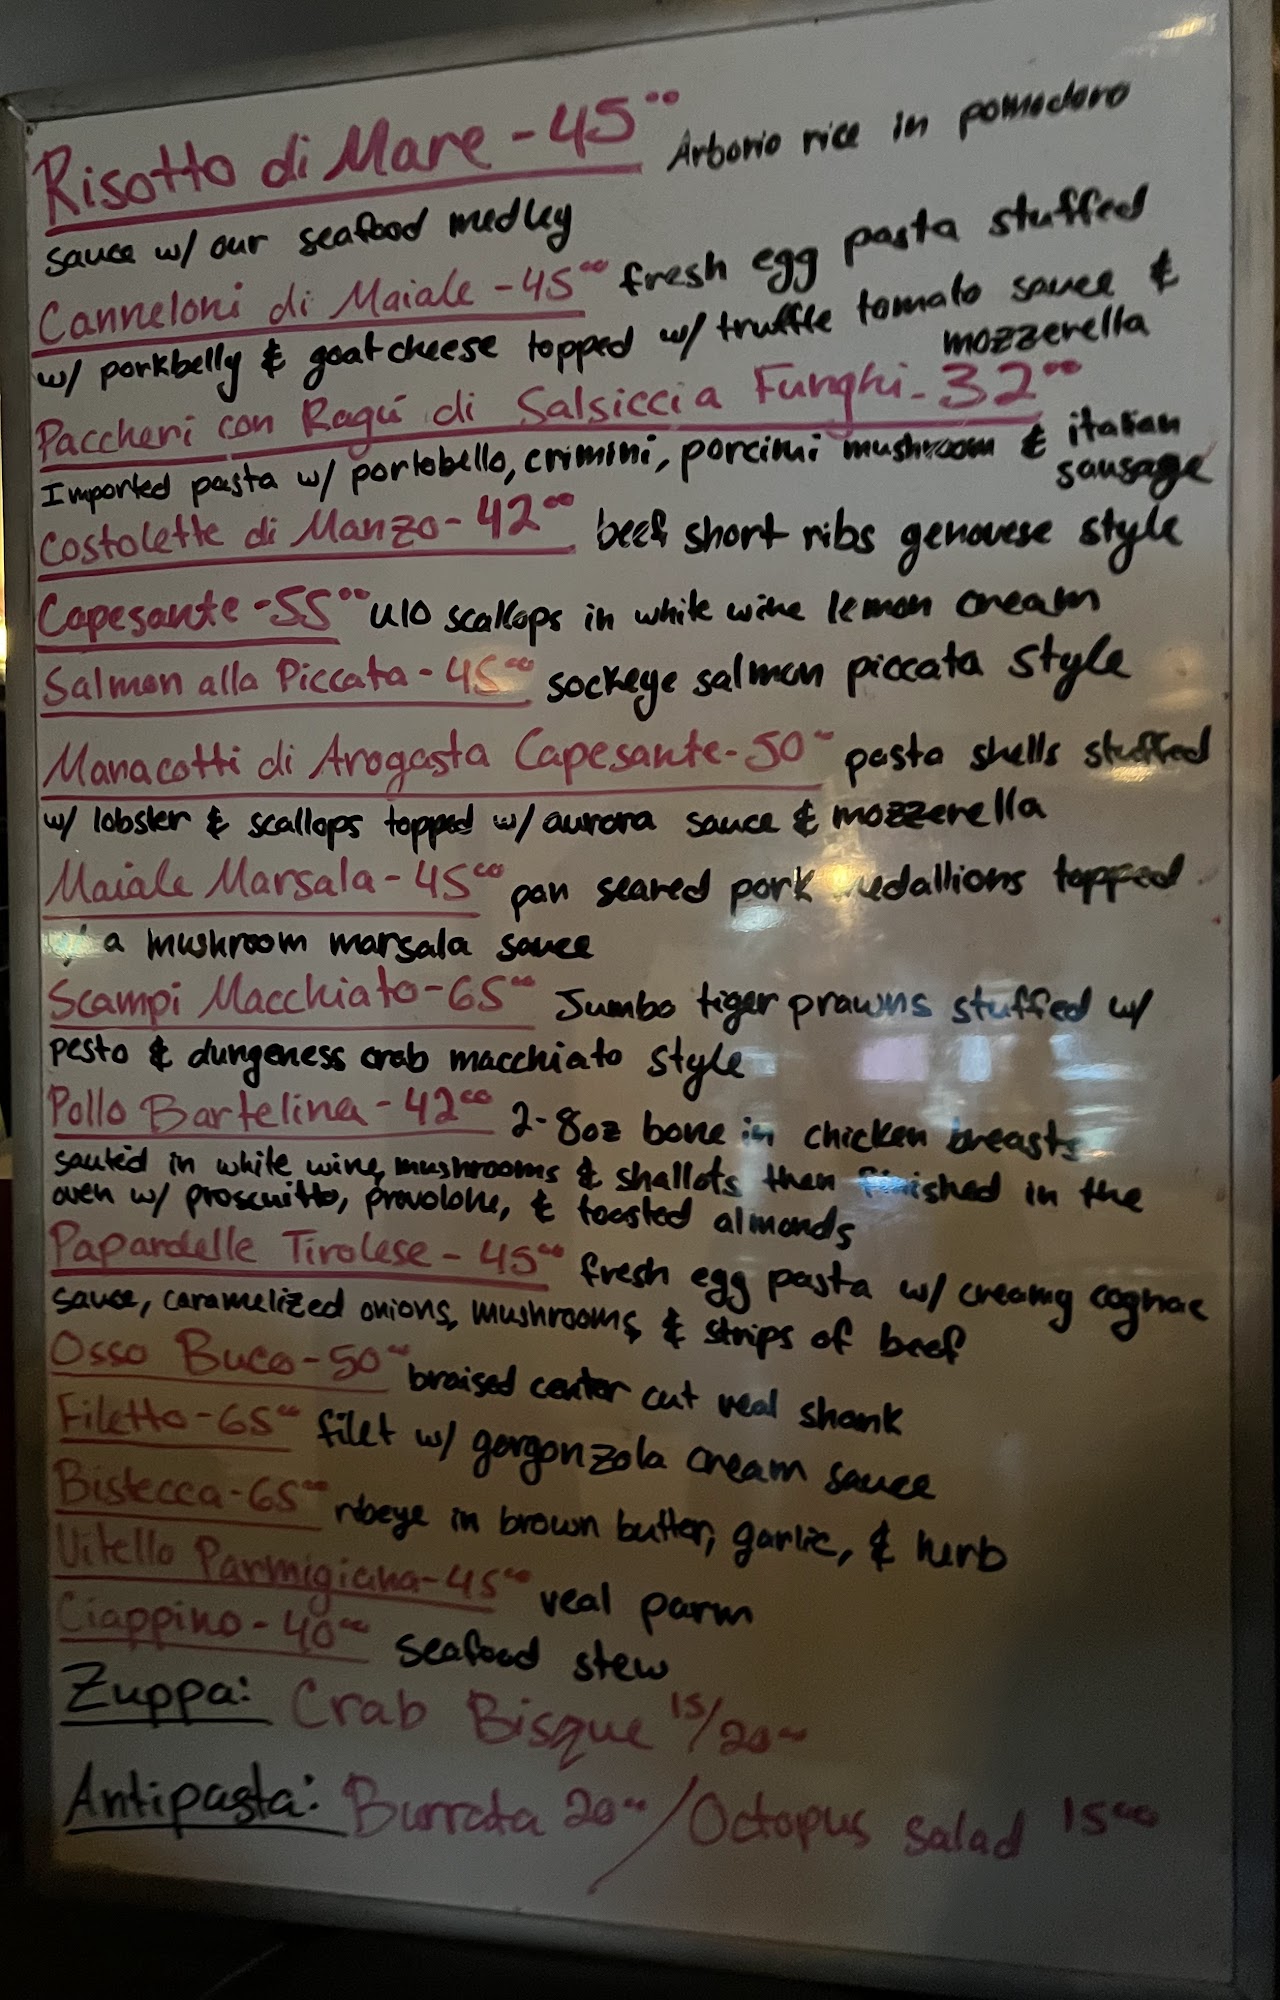 Risotto di Mare - 45⁰⁰ Arborio rice in pomodoro
sauce w/ our seafood medley
Canneloni di Maiale - 45⁰⁰ fresh egg pasta stuffed
w/ porkbelly & goat cheese topped w/ truffle tomato sauce &
mozzerella
Paccheri con Ragú di Salsiccia Funghi - 32⁰⁰
Imported pasta w/ portobello, crimini, porcini mushroom & italian
sausage
Costolette di Manzo - 42⁰⁰ beef short ribs genovese style
Capesante - 55⁰⁰ U10 scallops in white wine lemon cream
Salmon alla Piccata - 45⁰⁰ sockeye salmon piccata style
Manacotti di Arogasta Capesante - 50⁰⁰ pasta shells stuffed
w/ lobster & scallops topped w/ aurora sauce & mozzerella
Maiale Marsala - 45⁰⁰ pan seared pork medallions topped
w/ a mushroom marsala sauce
Scampi Macchiato - 65⁰⁰ Jumbo tiger prawns stuffed w/
pesto & dungeness crab macchiato style
Pollo Bartelina - 42⁰⁰ 2-8oz bone in chicken breasts
sautéd in white wine, mushrooms & shallots then finished in the
oven w/ proscuitto, provolone, & toasted almonds
Papardelle Tirolese - 45⁰⁰ fresh egg pasta w/ creamy cognac
sauce, caramelized onions, mushrooms, & strips of beef
Osso Buco - 50⁰⁰ braised center cut veal shank
Filetto - 65⁰⁰ filet w/ gorgonzola cream sauce
Bistecca - 65⁰⁰ ribeye in brown butter, garlic, & herb
Vitello Parmigiana - 45⁰⁰ veal parm
Ciappino - 40⁰⁰ seafood stew
Zuppa: Crab Bisque 15/20⁰⁰
Antipasta: Burrata 20⁰⁰ / Octopus salad 15⁰⁰